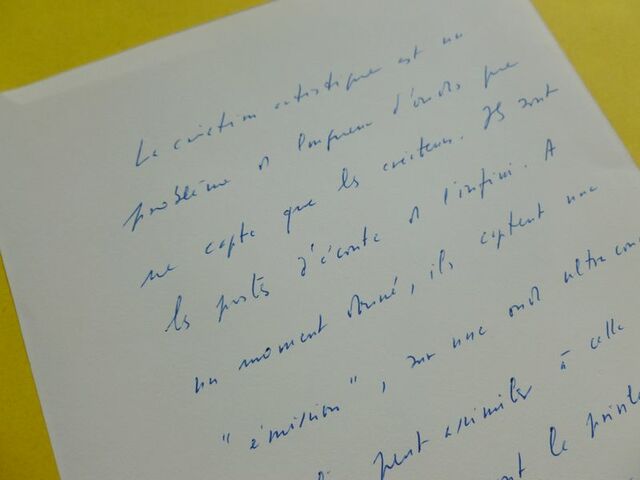 La création artistique est un
problème de longueur d'onde que
ne capte que les créateurs. Ils sont
les postes d'écoute de l'infini. A
un moment donné, ils captent une
"émission", sur une onde ultra cou
peut assimiler à celle
le